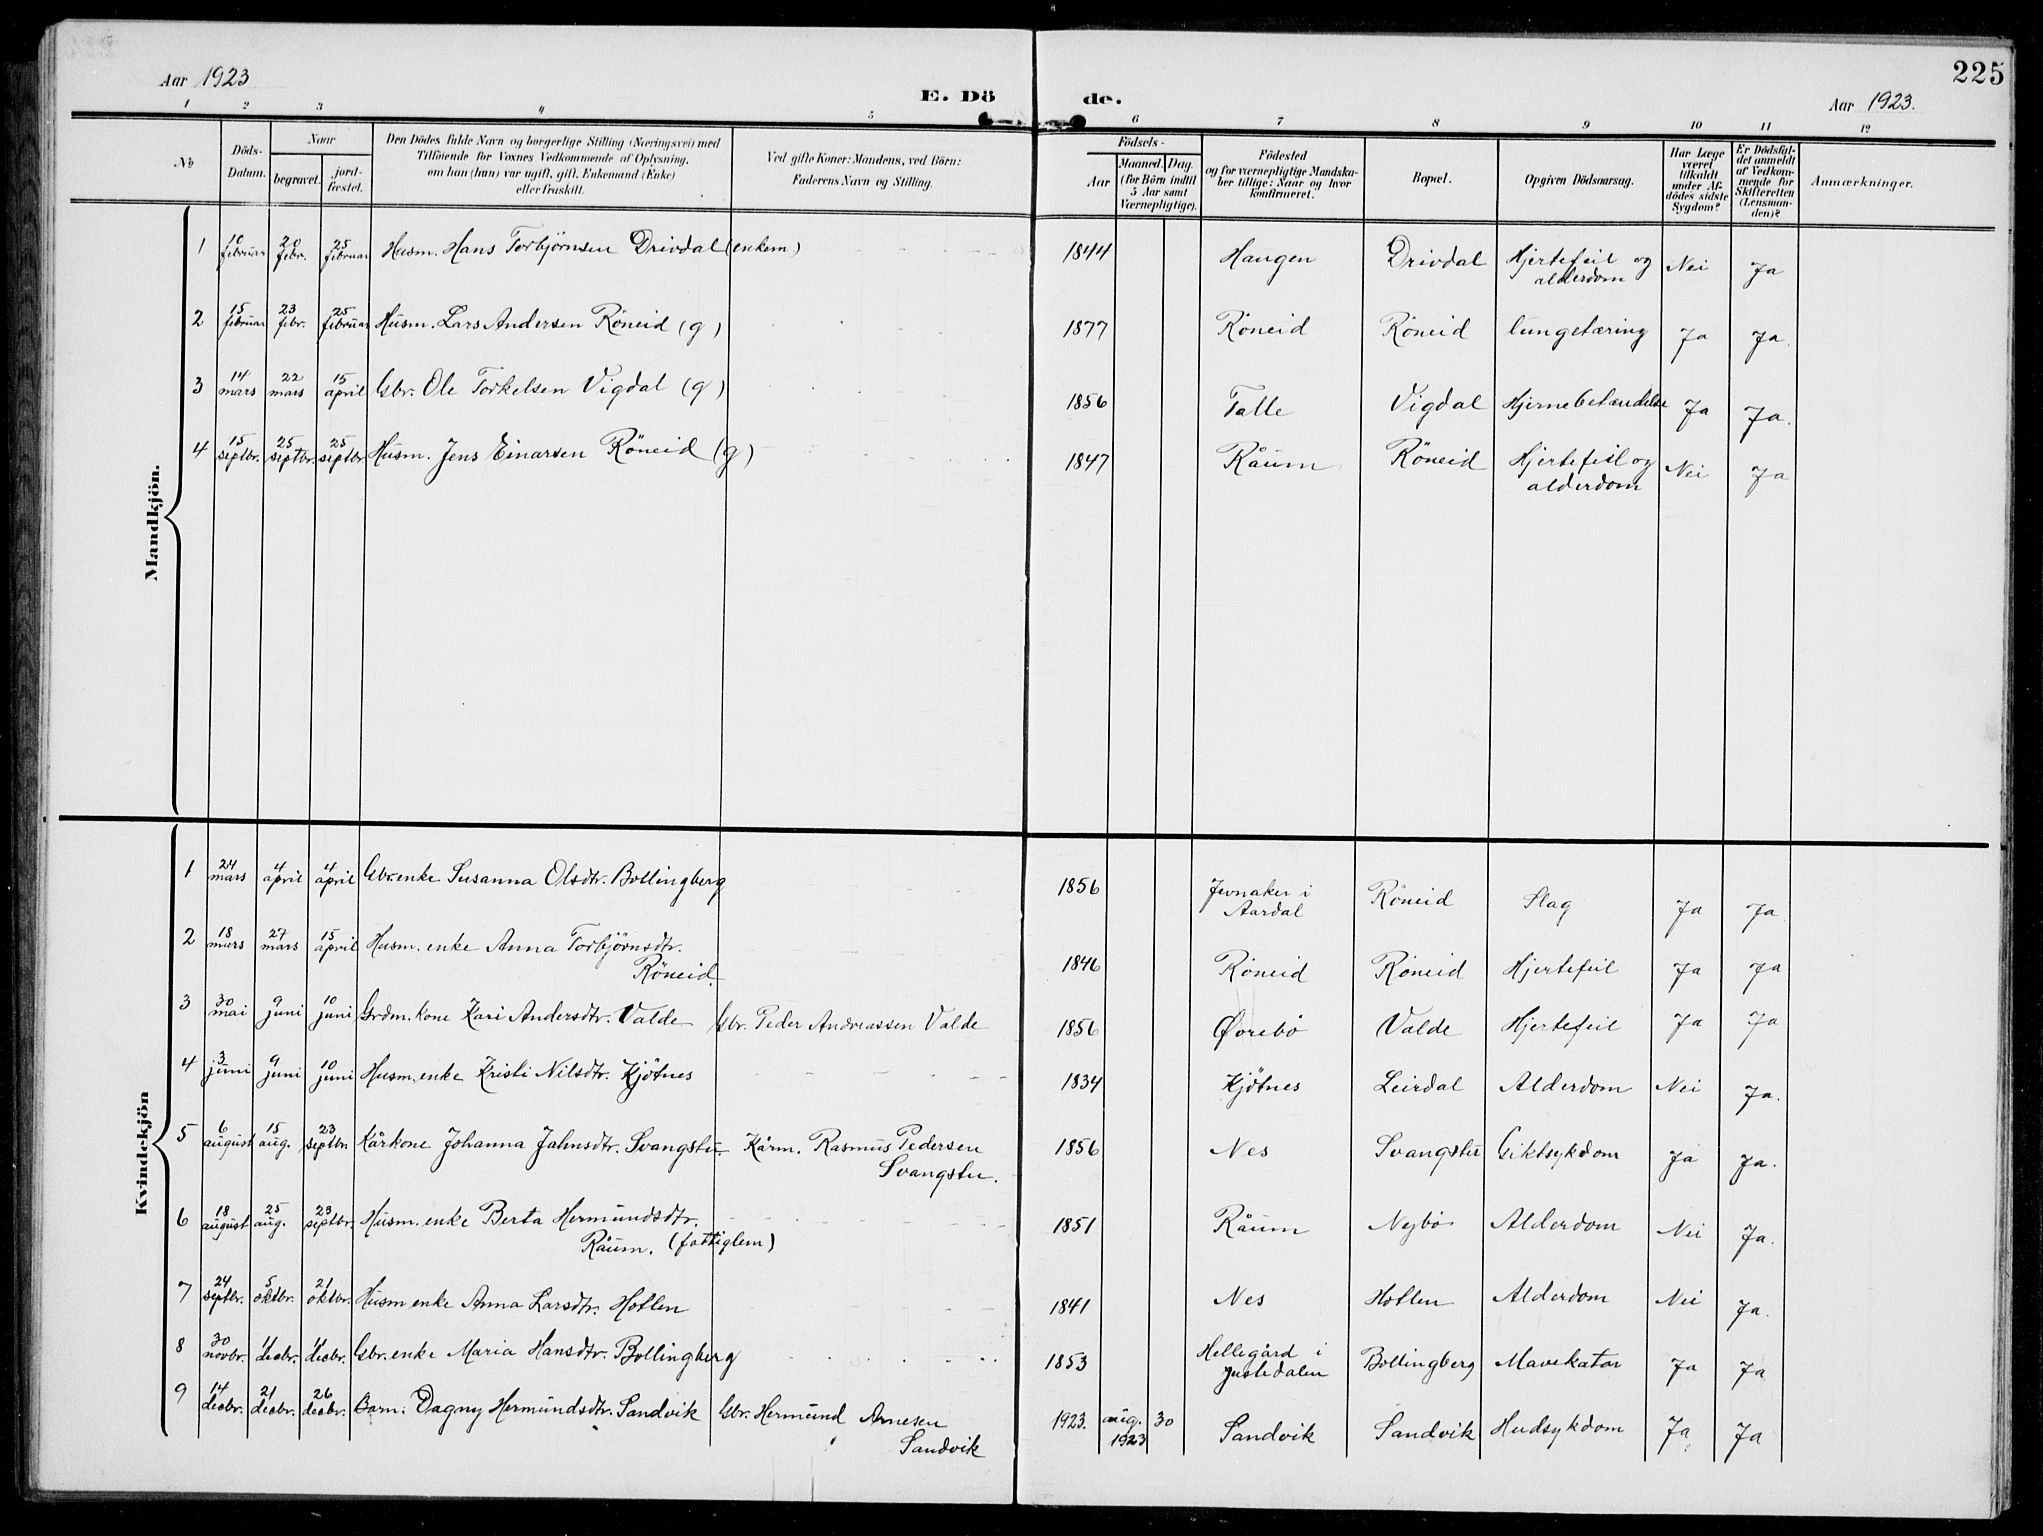 225
Aar 1923
E. Dö de.
Aar 1923.
1 2 3 4 5 6 7 8 9 10 11 12
No
Döds-
Datum.
Naar
begravet.
jord-
fæstet.
Den Dödes fulde Navn og borgerlige Stilling (Næringsvei) med
Tilföiende for Voxnes Vedkommende af Oplysning,
om han (hun) var ugift, gift, Enkemand (Enke)
eller fraskilt.
Ved gifte Koner: Mandens, ved Börn:
Faderens Navn og Stilling.
Födsels-
Aar
Maaned. Dag.
(for Börn indtil
5 Aar samt
Værnepligtige).
Födested
og for værnepligtige Mandska-
ber tillige: Naar og hvor
konfirmeret.
Bopæl.
Opgiven Dödsaarsag.
Har Læge
været
tilkaldt
under Af-
dödes sidste
Sygdom?
Er Dödsfal-
det anmeldt
af Vedkom-
mende for
Skifteretten
(Lensman-
den)?
Anmærkninger.
Mandkjön.
1 10 februar 20 febr. 25 februar Husm. Hans Torbjørnsen Drivdal (enkem) 1844 Haugen Drivdal Hjertefeil og alderdom Nei Ja
2 15 februar 23 febr. 25 februar Husm. Lars Andersen Röneid (g) 1877 Röneid Röneid lungetæring Ja Ja.
3 14 mars 22 mars 15 april Gbr. Ole Torkelsen Vigdal (g) 1856 Talle Vigdal Hjernebetændelse Ja Ja.
4 15 septbr. 25 septbr. 25 septbr. Husm. Jens Einarsen Röneid (g) 1847 Råum Röneid Hjertefeil og alderdom Nei Ja
Kvindekjön
1 24 mars 4 april 4 april Gbr.enke Susanna Olsdtr. Bollingberg 1856 Jevnaker i Aardal Röneid Slag Ja Ja
2 18 mars 27 mars 15 april Husm. enke Anna Torbjørnsdtr.
Röneid. 1846 Röneid Röneid Hjertefeil Ja Ja
3 30 mai 9 juni 10 juni Grdm. kone Kari Andersdtr. Valde Gbr. Peder Andreassen Valde 1856 Ørebö Valde Hjertefeil Ja Ja
4 3 juni 9 juni 10 juni Husm. enke Kristi Nilsdtr. Kjötnes 1834 Kjötnes Leirdal Alderdom Nei Ja.
5 6 august 15 aug. 23 septbr. Kårkone Johanna Jahnsdtr. Svangstu Kårm. Rasmus Pedersen
Svangstu. 1856 Nes Svangstu Giktsykdom Ja Ja.
6 18 august 25 aug. 23 septbr. Husm. enke Berta Hermundsdtr.
Råum. (fattiglem) 1851 Råum Nybö Alderdom Nei Ja.
7 24 septbr. 5 oktbr. 21 oktbr. Husm enke Anna Larsdtr. Hotlen 1841 Nes Hotlen Alderdom Nei Ja.
8 30 novbr. 11 decbr. 11 decbr. Gbr. enke Maria Hansdtr. Bollingberg 1853 Hellegård i Justedalen Bollingberg Mavekatar Ja Ja
9 14 decbr. 21 decbr. 26 decbr. Barn: Dagny Hermundsdtr. Sandvik Gbr. Hermund Arnesen
Sandvik 1923. aug. 1923 30 Sandvik Sandvik Hudsykdom Ja Ja